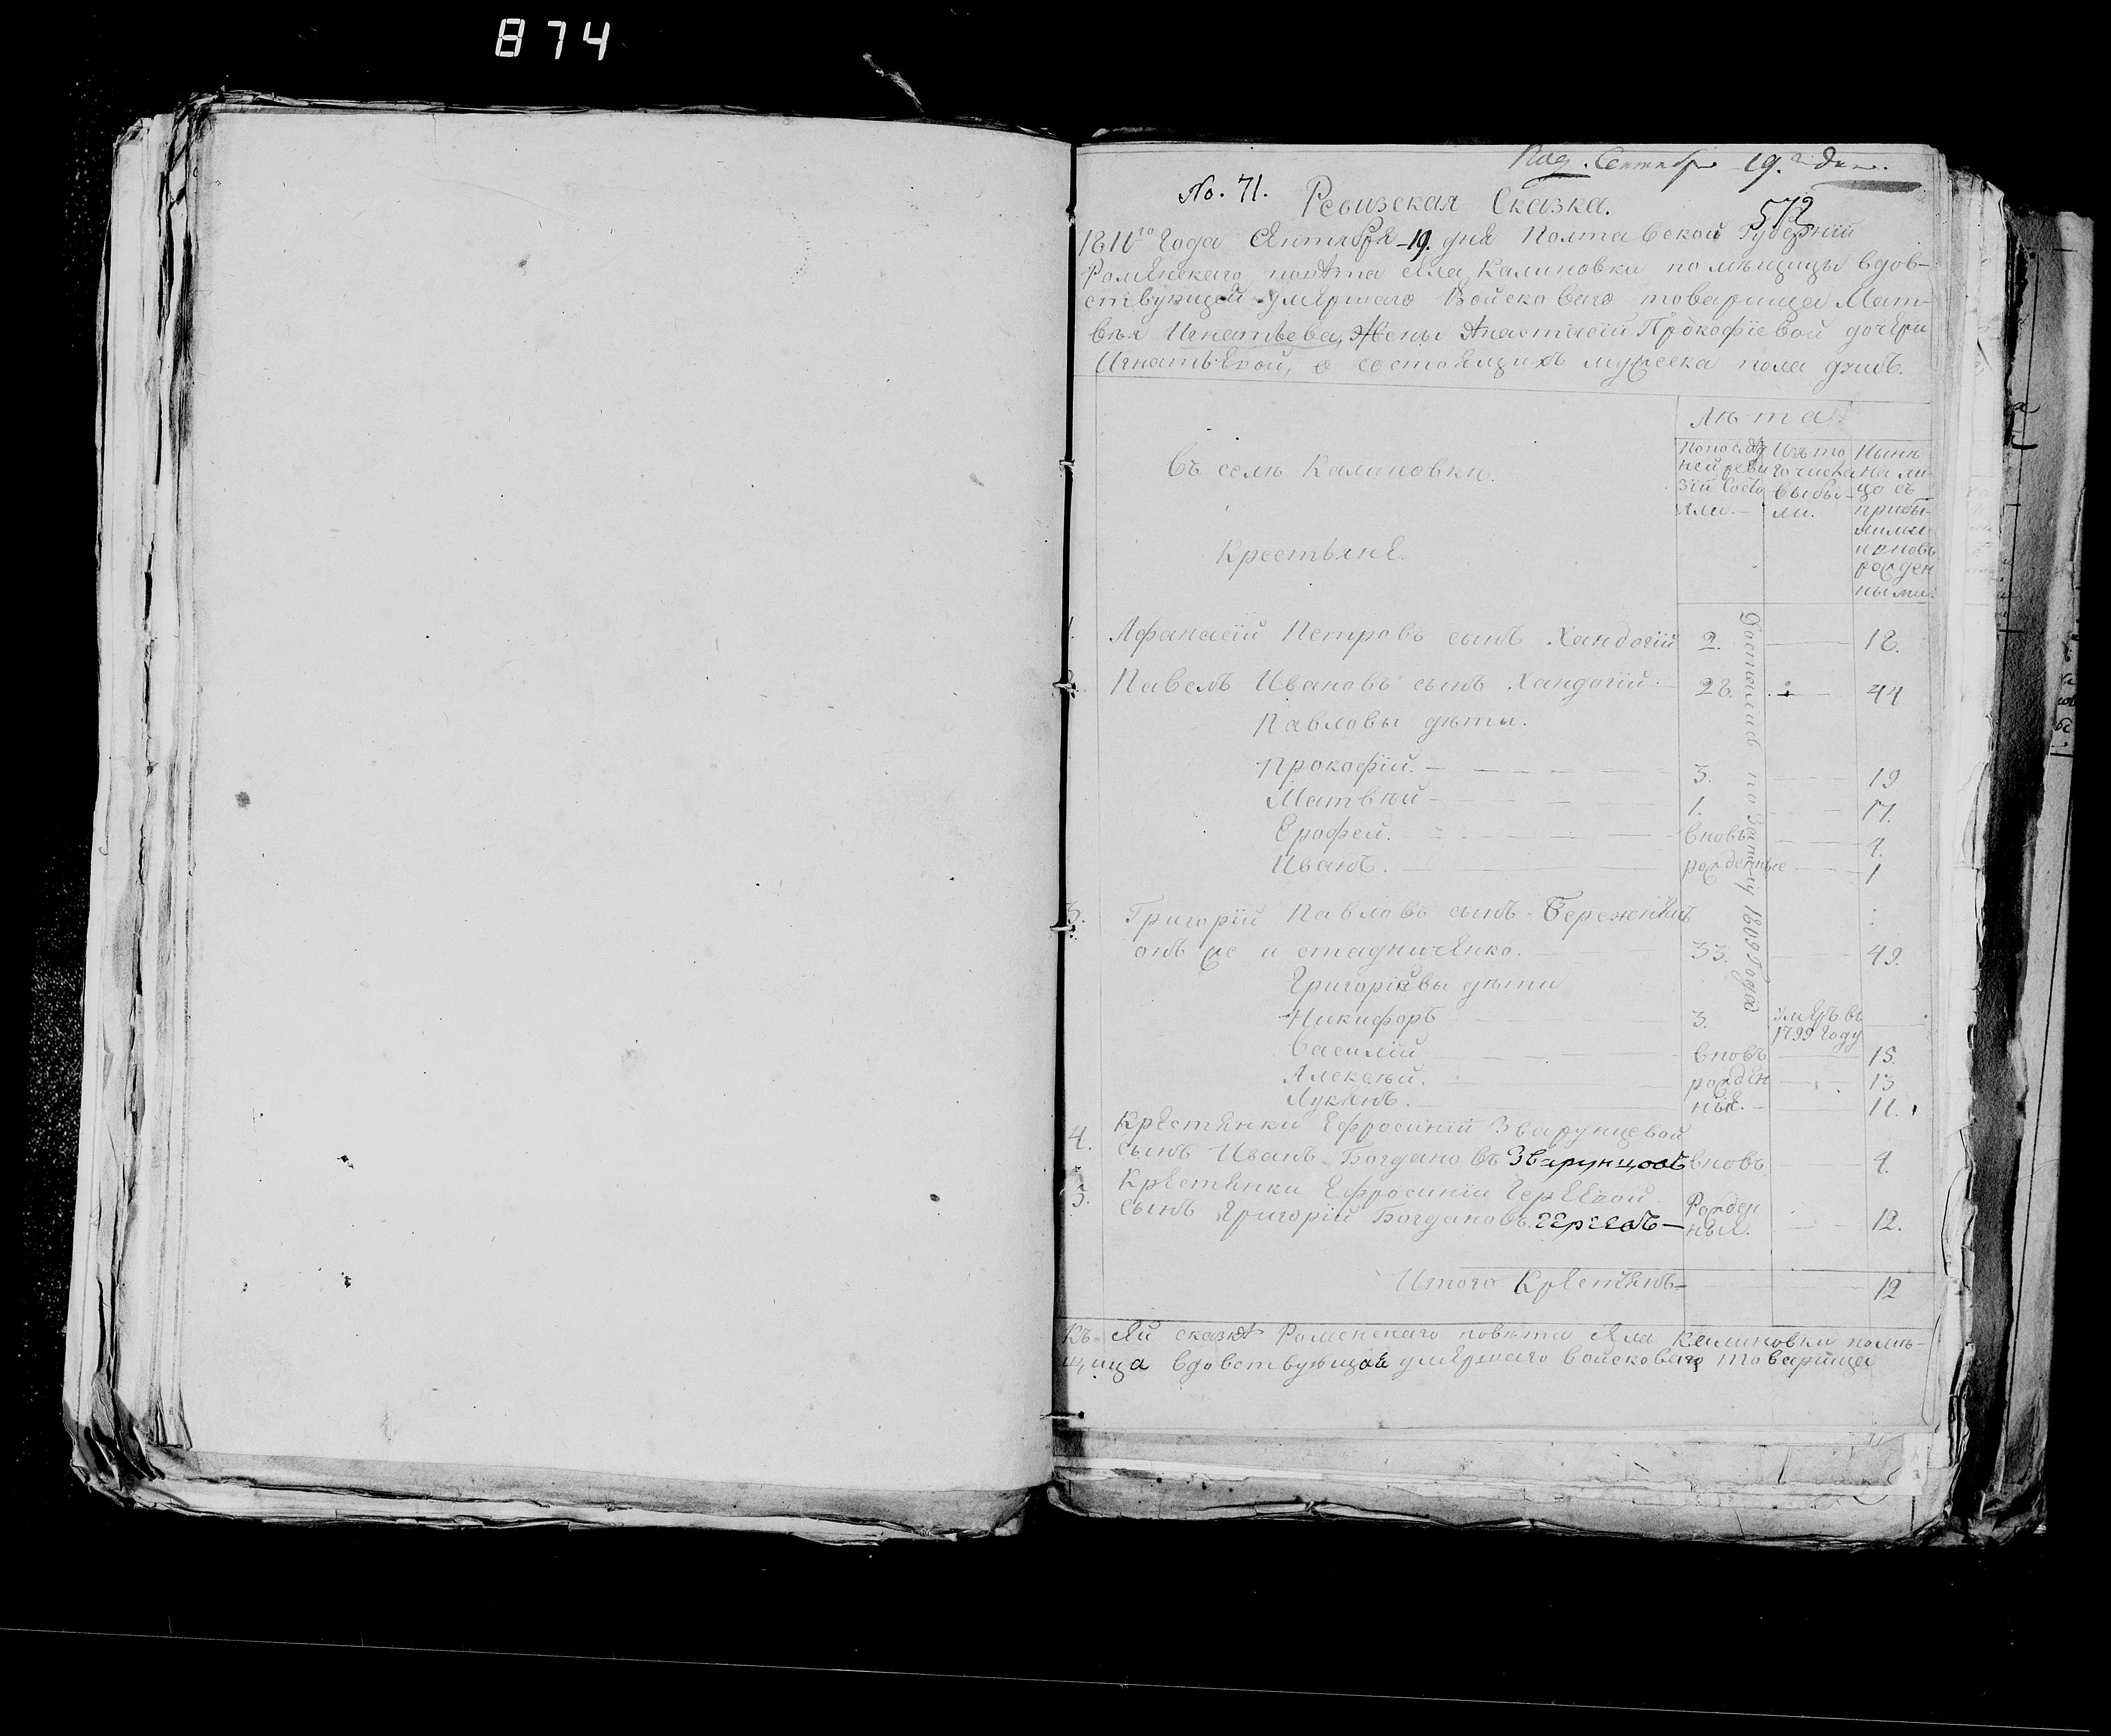 874
Под. Сентября 19.го дня.
No. 71.
Ревизская Сказка.
572
1811го Года Сентября 19. дня Полтавской Губернїи
Роменскаго повѣта села Калиновки помѣщицы вдов-
ствующей умершаго Войсковаго товарища Мат-
вѣя Игнатьева, жены Анастасїи Прокофїевой дочери
Игнатьевой, о состоящихъ мужеска пола душъ.
Въ селѣ Калиновки.
Крестьяне.
Лѣта.
По послѣд
ней реви
зїи Состо
яли.
Изъ то
го числа
выбы-
ли.
Нынѣ
на ли-
цо съ
прибы-
лыми
и вновь
рожден
ными.
Достоилась по 1809 Года
1. Афанасїй Петровъ сынъ Хандогїй 2. — 18.
2. Павелъ Ивановъ сынъ Хандогїй 28. — 44
Павловы дѣти.
Прокофїй. — 3. — 19
Матвѣй — 1. — 17.
Ерофей. — вновь — 4.
Иванъ. — рожденные — 1
3. Григорїй Павловъ сынъ Бережный
онъ же и стадниченко. — 33. — 49.
Григорїевы дѣти
Никифоръ 3. умеръ въ
1799 Году
Василїй вновь — 15.
Алексѣй. рожден — 13
Лукянъ. ные. — 11.
4. Крестянки Ефросинїи Зварунцевой
сынъ Иванъ Богдановъ Зварунцовъ вновь — 4.
5. Крестянки Ефросинїи Гереевой
сынъ Григорїй Богдановъ. Гереевъ — Рожден
ныя. — 12.
Итого Крестянъ — 12
Къ сей сказкѣ Роменскаго повѣта села Калиновки помѣ-
щица вдовствующая умершаго войсковаго товарища